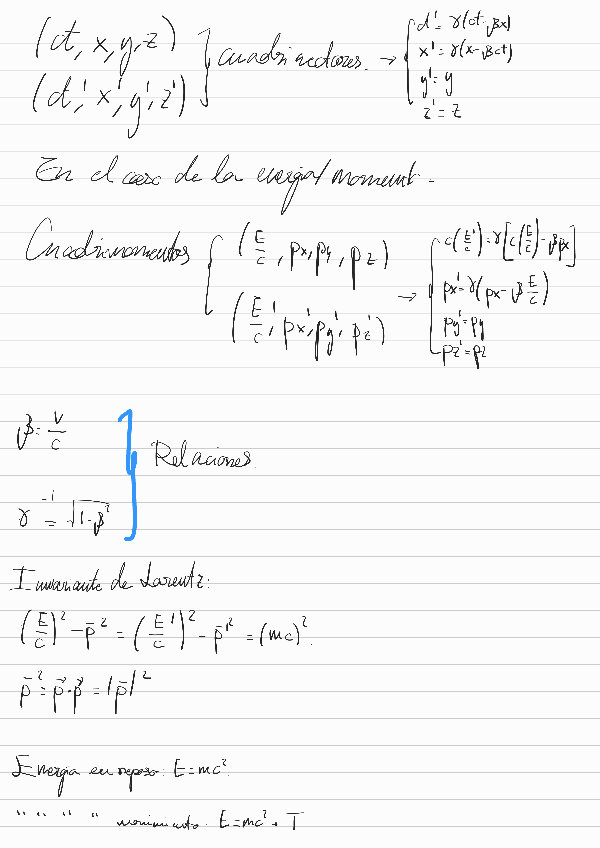 (ct, x, y, z)
(ct', x', y', z')
} cuadrivectores. →
ct' = γ(ct - βx)
x' = γ(x - βct)
y' = y
z' = z
En el caso de la energia/moment.
Cuadrimomentos
(E/c, px, py, pz)
(E'/c, px', py', pz') →
c(E'/c) = γ[c(E/c) - βpx]
px' = γ(px - β E/c)
py' = py
pz' = pz
β = v/c
γ⁻¹ = √(1-β²)
} Relaciones
Invariante de Lorentz:
(E/c)² - p̄² = (E'/c)² - p̄'² = (mc)².
p̄² = p⃗·p⃗ = |p̄|²
Energia en reposo: E = mc².
" " " " movimiento. E = mc² + T